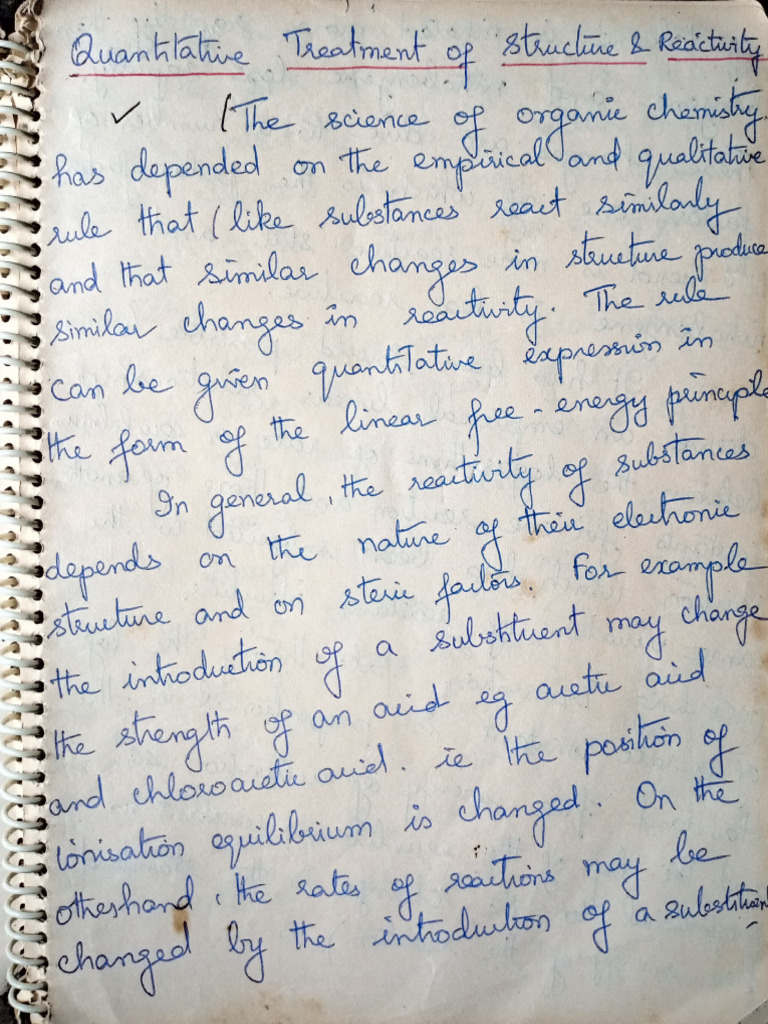 Quantitative Treatment of Structure & Reactivity
✓ (The science of organic chemistry.
has depended on the empirical and qualitative
rule that (like substances react similarly
and that similar changes in structure produce
similar changes in reactivity. The rule
can be given quantitative expression in
the form of the linear free-energy principle
In general, the reactivity of substances
depends on the nature of their electronic
structure and on steric factors. For example
the introduction of a substituent may change
the strength of an acid eg acetic acid
and chloroacetic acid. ie the position of
ionisation equilibrium is changed. On the
otherhand, the rates of reactions may be
changed by the introduction of a substituent